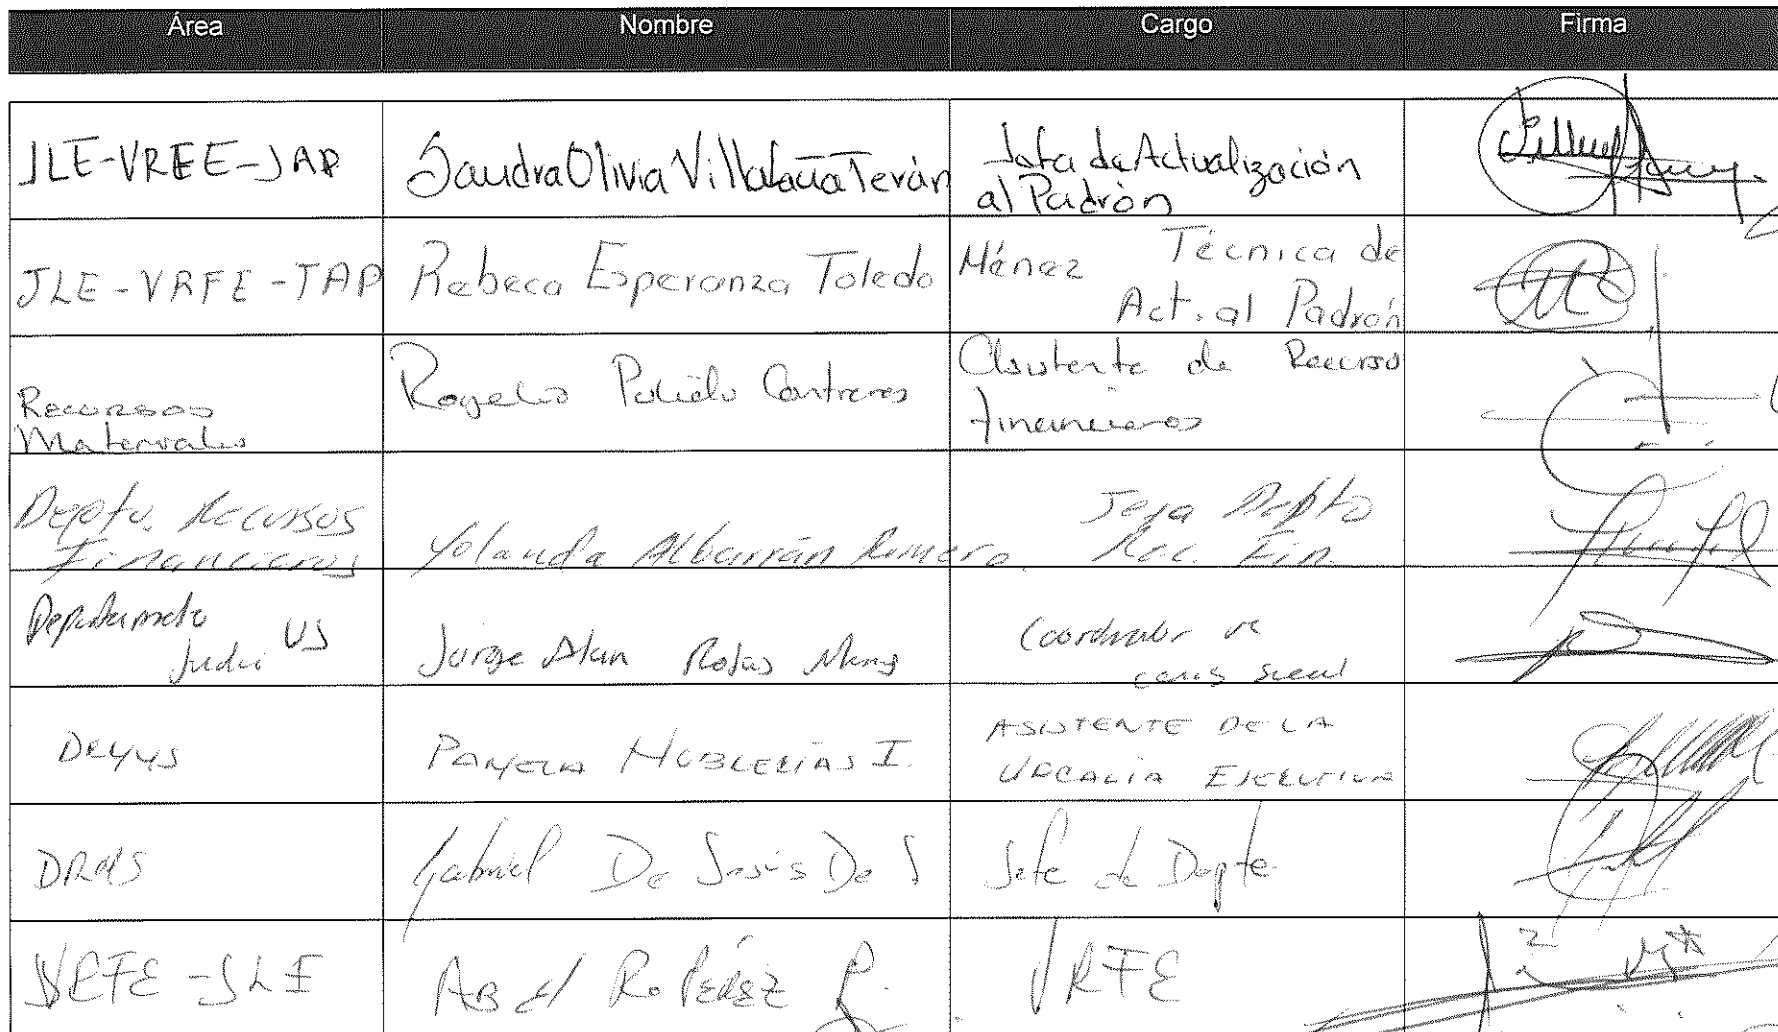 Área Nombre Cargo Firma
JLE-VREE-JAP Sandra Olivia Villafaña Terán Jefa de Actualización
al Padrón
JLE-VRFE-JAP Rebeca Esperanza Toledo Ménez Técnica de
Act. al Padrón
Recursos
Materiales
Rogelio Contreras
Asistente de Recurso
financieros
Depto. Recursos
Financieros
Yolanda Albarrán Romero.
Jefa Depto
Rec. Fin.
Jorge Alan Rojas
Coordinador
PAMELA I.
ASISTENTE DE LA
VOCALIA EJECUTIVA
Gabriel De Jesús De J
Jefe de Depto.
VRFE-JLE
VRFE